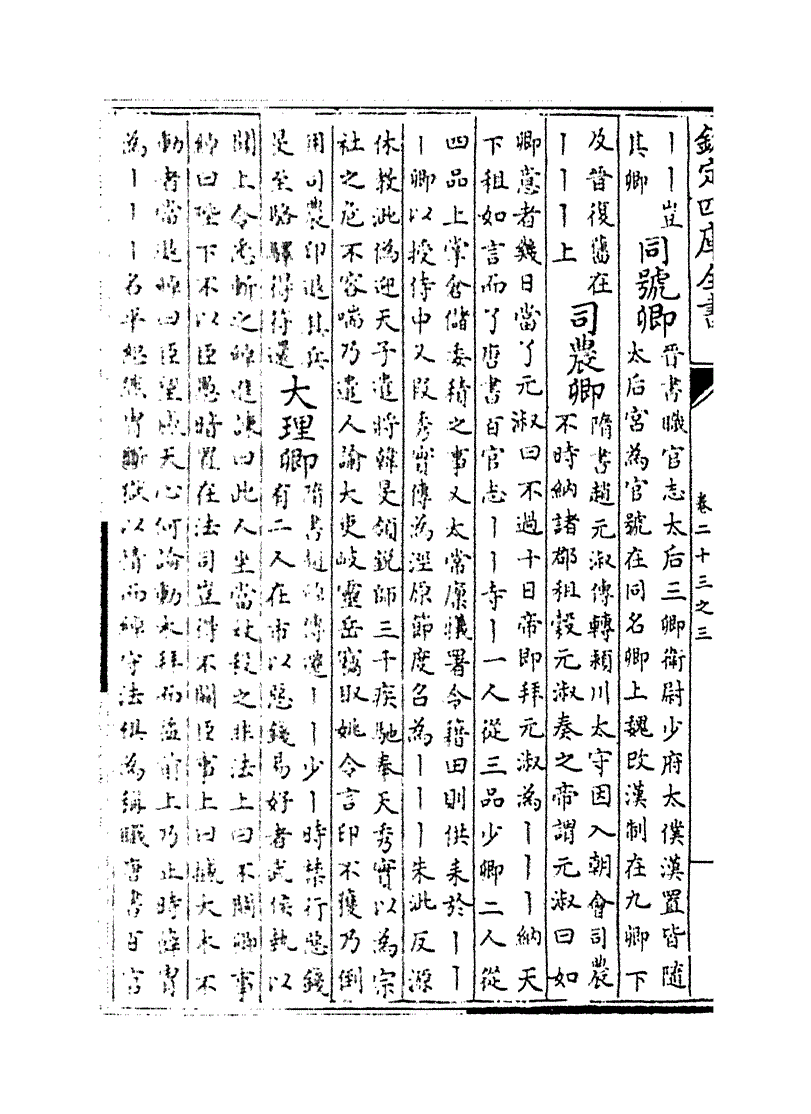 欽定四庫全書
卷二十三之三
丨丨豈
其卿
同號卿
晉書職官志太后三卿衛尉少府太僕漢置皆隨
太后宮為官號在同名卿上魏改漢制在九卿下
及晉復舊在
丨丨丨上
司農卿
隋書趙元淑傳轉潁川太守因入朝會司農
不時納諸郡租穀元淑奏之帝謂元淑曰如
卿意者幾日當了元淑曰不過十日帝即拜元淑為丨丨丨納天
下租如言而了唐書百官志丨丨寺丨一人從三品少卿二人從
四品上掌倉儲委積之事又太常廩犧署令籍田則供耒於丨丨
丨卿以授侍中又段秀實傳為涇原節度召為丨丨丨朱泚反源
休教泚偽迎天子遣將韓旻領銳師三千疾馳奉天秀實以為宗
社之危不容喘乃遣人諭大吏岐靈岳竊取姚令言印不獲乃倒
用司農印追其兵
旻至駱驛得符還
大理卿
隋書趙綽傳遷丨丨少丨時禁行惡錢
有二人在市以惡錢易好者武侯執以
聞上令悉斬之綽進諫曰此人坐當杖殺之非法上曰不關卿事
綽曰陛下不以臣愚暗置在法司豈得不關臣事上曰撼大木不
動者當退綽曰臣望感天心何論動木拜而益前上乃止時薛胄
為丨丨丨名平恕然胄斷獄以情而綽守法俱為稱職唐書百官